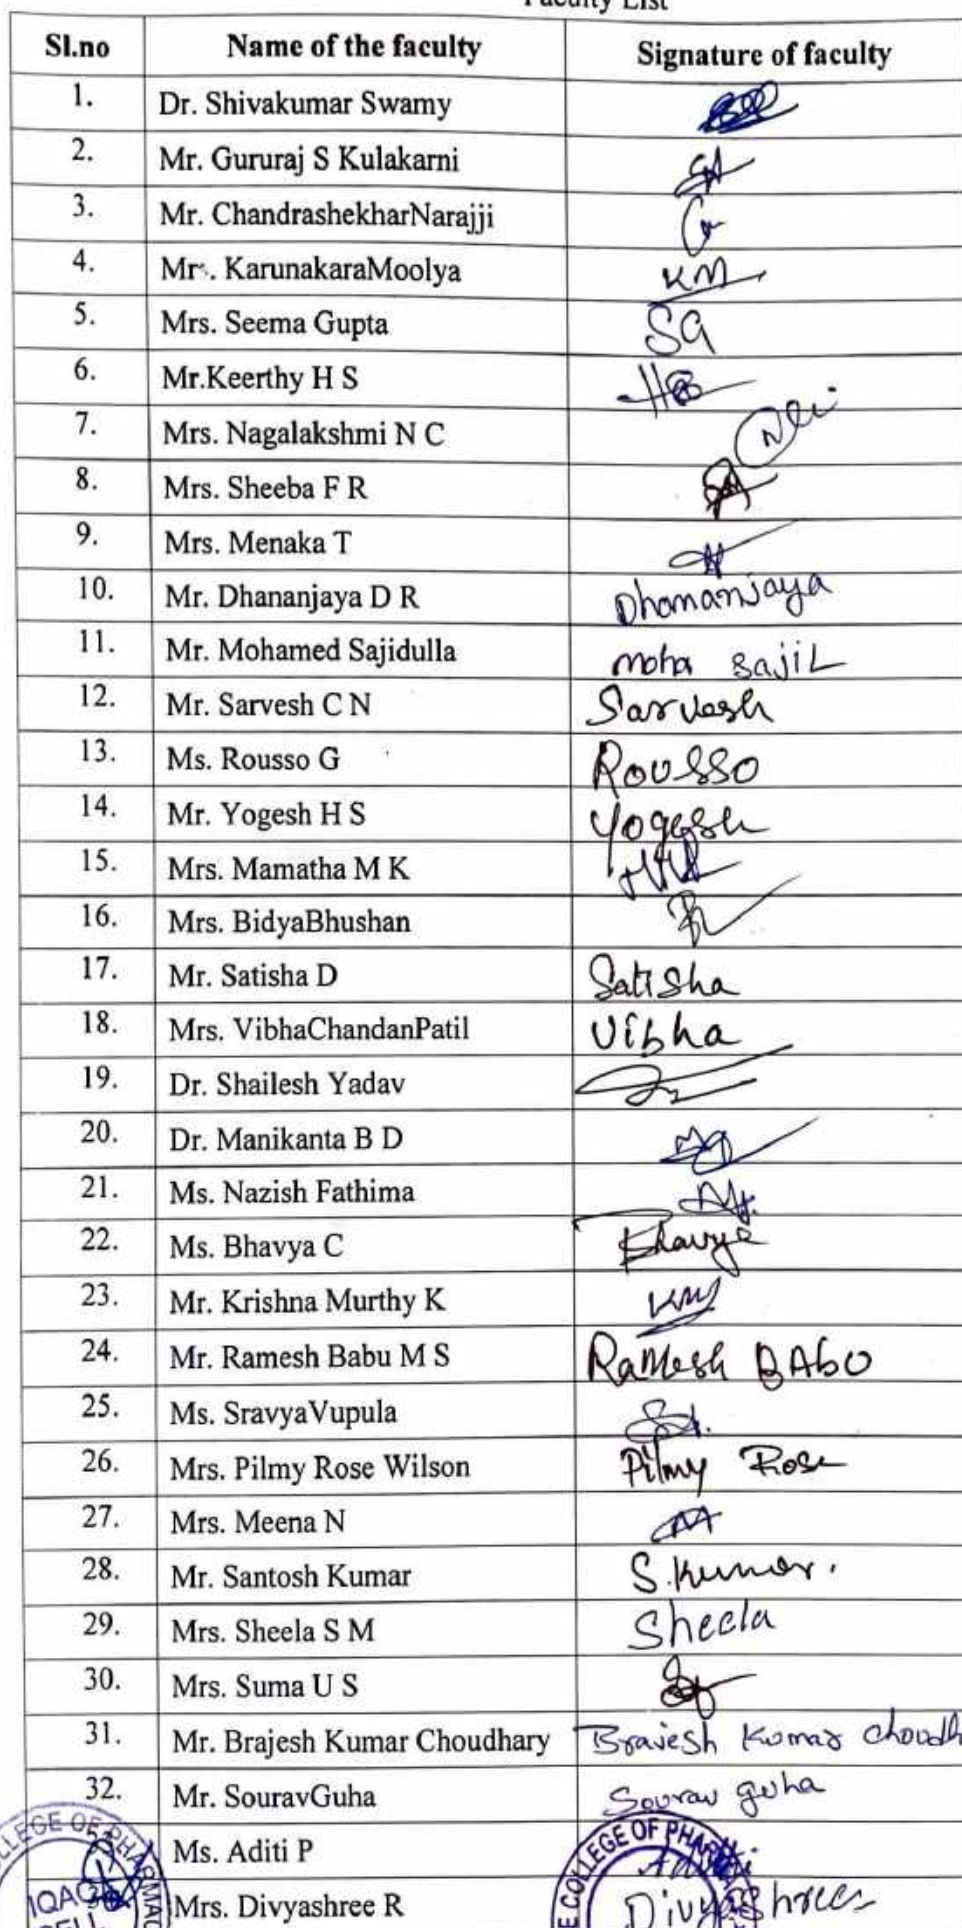 Faculty List
Sl.no Name of the faculty Signature of faculty
1. Dr. Shivakumar Swamy
2. Mr. Gururaj S Kulakarni
3. Mr. ChandrashekharNarajji
4. Mr. KarunakaraMoolya KM
5. Mrs. Seema Gupta SG
6. Mr.Keerthy H S
7. Mrs. Nagalakshmi N C
8. Mrs. Sheeba F R
9. Mrs. Menaka T
10. Mr. Dhananjaya D R Dhananjaya
11. Mr. Mohamed Sajidulla moha sajiL
12. Mr. Sarvesh C N Sarvesh
13. Ms. Rousso G Rousso
14. Mr. Yogesh H S Yogesh
15. Mrs. Mamatha M K
16. Mrs. BidyaBhushan
17. Mr. Satisha D Satisha
18. Mrs. VibhaChandanPatil Vibha
19. Dr. Shailesh Yadav
20. Dr. Manikanta B D
21. Ms. Nazish Fathima
22. Ms. Bhavya C Bhavya
23. Mr. Krishna Murthy K KM
24. Mr. Ramesh Babu M S RaMesh BAbU
25. Ms. SravyaVupula
26. Mrs. Pilmy Rose Wilson Pilmy Rose
27. Mrs. Meena N
28. Mr. Santosh Kumar S.Kumar.
29. Mrs. Sheela S M Sheela
30. Mrs. Suma U S
31. Mr. Brajesh Kumar Choudhary Brajesh Kumar Choudh
32. Mr. SouravGuha Sourav guha
Ms. Aditi P
Mrs. Divyashree R Divyashree
LLEGE OF PHARMAC
IQAC
CELL
E COLLEGE OF PHARMA